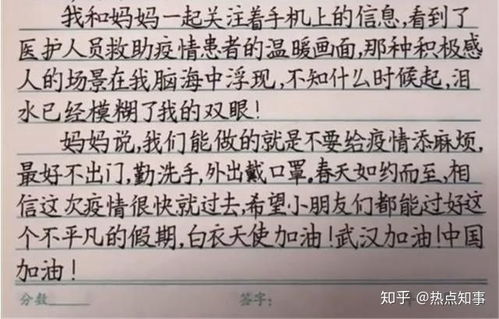 我和妈妈一起关注着手机上的信息,看到了
医护人员救助疫情患者的温暖画面,那种积极感
人的场景在我脑海中浮现,不知什么时候起,泪
水已经模糊了我的双眼!
妈妈说,我们能做的就是不要给疫情添麻烦,
最好不出门,勤洗手,外出戴口罩。春天如约而至,相
信这次疫情很快就过去,希望小朋友们都能过好这
个不平凡的假期,白衣天使加油!武汉加油!中国
加油!
分数 签字:
知乎 @热点知事